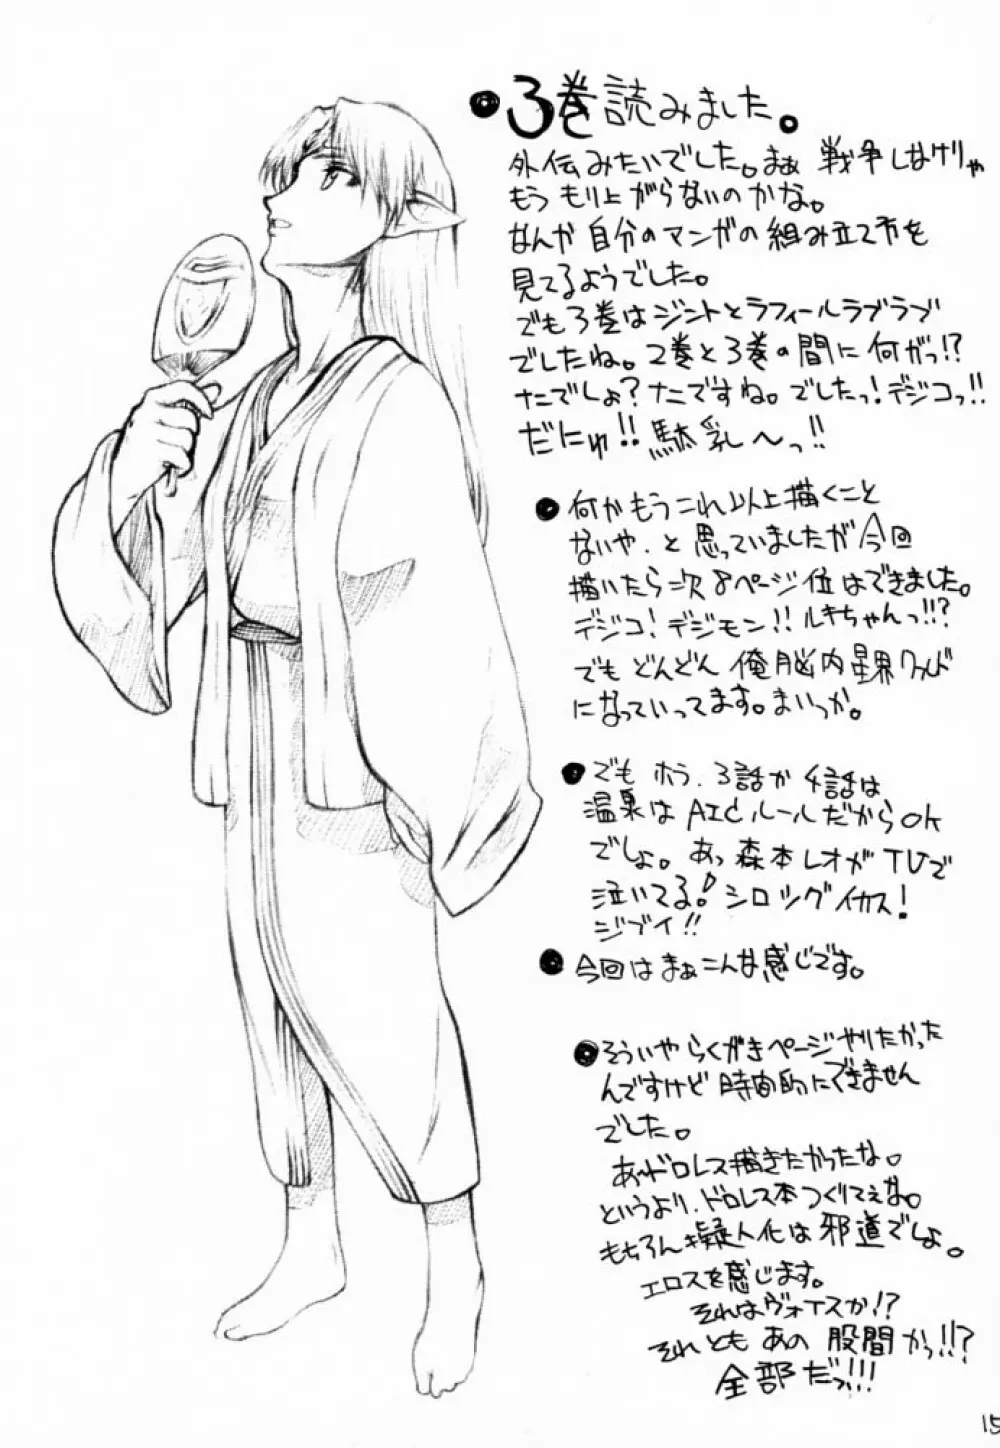 ●3巻読みました。
外伝みたいでした。まぁ 戦争しなけりゃ
もう もり上がらないのかな。
なんか 自分のマンガの組み立て方を
見てるようでした。
でも3巻はジントとラフィールラブラブ
でしたね。2巻と3巻の間に何がっ!?
なでしょ?なにですね。でしたっ!デジコっ!!
だにゅ!!駄乳〜っ!!
●何かもうこれ以上描くこと
ないや.と思っていましたが今回
描いたら次8ページ位はできました。
デジコ!デジモン!!ルキちゃんっ!!?
でも どんどん 俺脳内星界ワールド
になっていってます。まいっか。
●でも ホラ.3話か4話は
温泉は AICルールだからOK
でしょ。あっ 森本レオが TVで
泣いてる!シロッグイカス!
ジブイ!!
●今回はまぁこんな感じです。
●そういや らくがきページやりたかった
んですけど 時間的にできません
でした。
あ〜ドロレス描きたかったな。
というより.ドロレス本つくりてぇな。
もちろん擬人化は邪道でしょ。
エロスを感じます。
それはヴォイスか!?
それとも あの 股間かっ!!?
全部だっ!!!
15